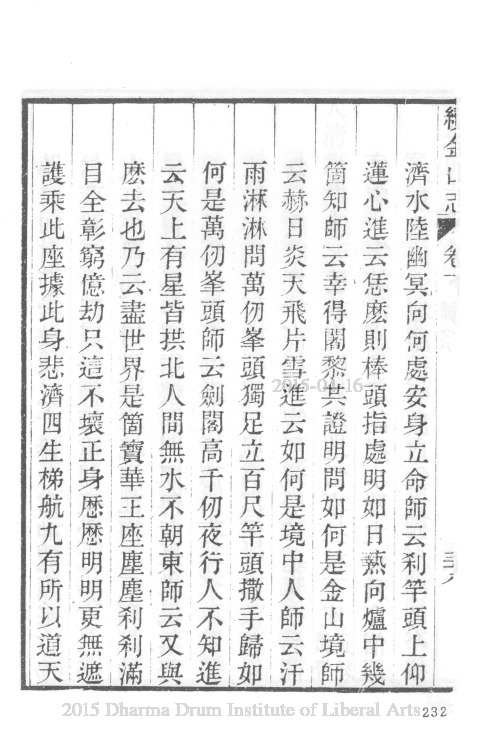 續金山志 卷下
三六
濟水陸幽冥向何處安身立命師云刹竿頭上仰
蓮心進云恁麽則棒頭指處明如日熱向爐中幾
箇知師云幸得闍黎共證明問如何是金山境師
云赫日炎天飛片雪進云如何是境中人師云汗
雨淋淋問萬仞峯頭獨足立百尺竿頭撒手歸如
何是萬仞峯頭師云劍閣高千仞夜行人不知進
云天上有星皆拱北人間無水不朝東師云又與
麽去也乃云盡世界是箇寶華王座塵塵刹刹滿
目全彰窮億劫只這不壞正身歷歷明明更無遮
護乘此座據此身悲濟四生梯航九有所以道天
2015-04-16
2015 Dharma Drum Institute of Liberal Arts
232